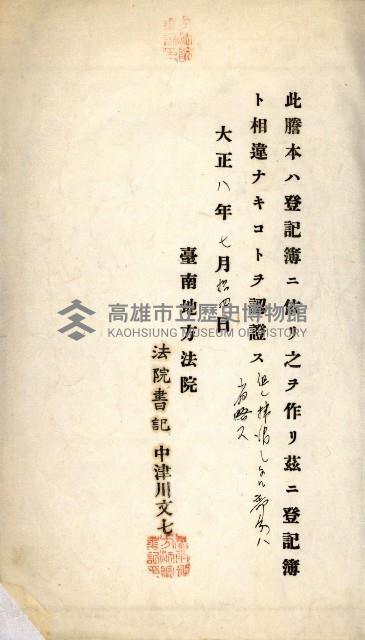 此謄本ハ登記簿ニ依リ之ヲ作リ茲ニ登記簿
ト相違ナキコトヲ認證ス
省略ス
大正八年七月拾四日
臺南地方法院
法院書記 中津川文七
高雄市立歷史博物館
KAOHSIUNG MUSEUM OF HISTORY